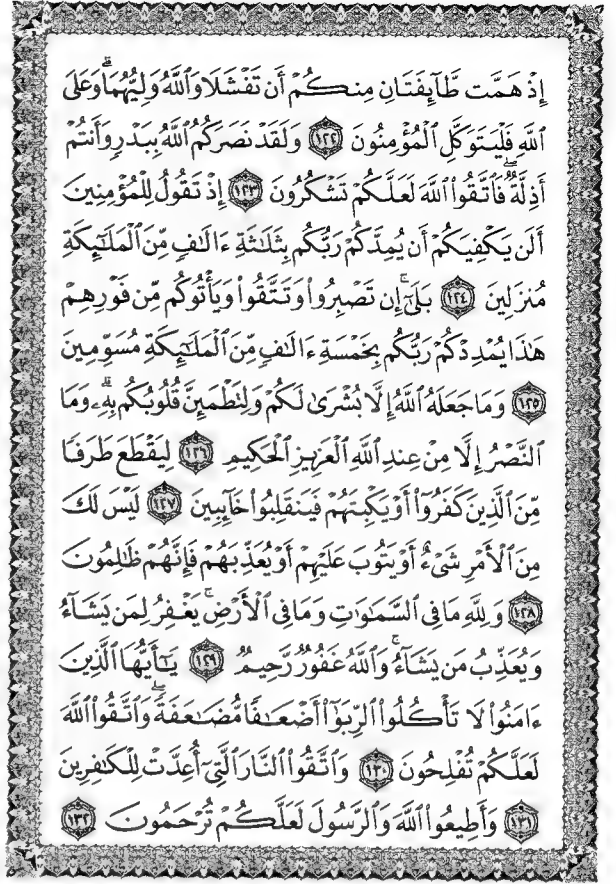 إِذْ هَمَّت طَّآئِفَتَانِ مِنكُمْ أَن تَفْشَلَا وَٱللَّهُ وَلِيُّهُمَاۗ وَعَلَى
ٱللَّهِ فَلْيَتَوَكَّلِ ٱلْمُؤْمِنُونَ ١٢٢ وَلَقَدْ نَصَرَكُمُ ٱللَّهُ بِبَدْرٍ وَأَنتُمْ
أَذِلَّةٌۖ فَٱتَّقُوا۟ ٱللَّهَ لَعَلَّكُمْ تَشْكُرُونَ ١٢٣ إِذْ تَقُولُ لِلْمُؤْمِنِينَ
أَلَن يَكْفِيَكُمْ أَن يُمِدَّكُمْ رَبُّكُم بِثَلَٰثَةِ ءَالَٰفٍ مِّنَ ٱلْمَلَٰٓئِكَةِ
مُنزَلِينَ ١٢٤ بَلَىٰٓۚ إِن تَصْبِرُوا۟ وَتَتَّقُوا۟ وَيَأْتُوكُم مِّن فَوْرِهِمْ
هَٰذَا يُمْدِدْكُمْ رَبُّكُم بِخَمْسَةِ ءَالَٰفٍ مِّنَ ٱلْمَلَٰٓئِكَةِ مُسَوِّمِينَ
١٢٥ وَمَا جَعَلَهُ ٱللَّهُ إِلَّا بُشْرَىٰ لَكُمْ وَلِتَطْمَئِنَّ قُلُوبُكُم بِهِۦۗ وَمَا
ٱلنَّصْرُ إِلَّا مِنْ عِندِ ٱللَّهِ ٱلْعَزِيزِ ٱلْحَكِيمِ ١٢٦ لِيَقْطَعَ طَرَفًا
مِّنَ ٱلَّذِينَ كَفَرُوٓا۟ أَوْ يَكْبِتَهُمْ فَيَنقَلِبُوا۟ خَآئِبِينَ ١٢٧ لَيْسَ لَكَ
مِنَ ٱلْأَمْرِ شَىْءٌ أَوْ يَتُوبَ عَلَيْهِمْ أَوْ يُعَذِّبَهُمْ فَإِنَّهُمْ ظَٰلِمُونَ
١٢٨ وَلِلَّهِ مَا فِى ٱلسَّمَٰوَٰتِ وَمَا فِى ٱلْأَرْضِۚ يَغْفِرُ لِمَن يَشَآءُ
وَيُعَذِّبُ مَن يَشَآءُۚ وَٱللَّهُ غَفُورٌ رَّحِيمٌ ١٢٩ يَٰٓأَيُّهَا ٱلَّذِينَ
ءَامَنُوا۟ لَا تَأْكُلُوا۟ ٱلرِّبَوٰٓا۟ أَضْعَٰفًا مُّضَٰعَفَةًۖ وَٱتَّقُوا۟ ٱللَّهَ
لَعَلَّكُمْ تُفْلِحُونَ ١٣٠ وَٱتَّقُوا۟ ٱلنَّارَ ٱلَّتِىٓ أُعِدَّتْ لِلْكَٰفِرِينَ
١٣١ وَأَطِيعُوا۟ ٱللَّهَ وَٱلرَّسُولَ لَعَلَّكُمْ تُرْحَمُونَ ١٣٢